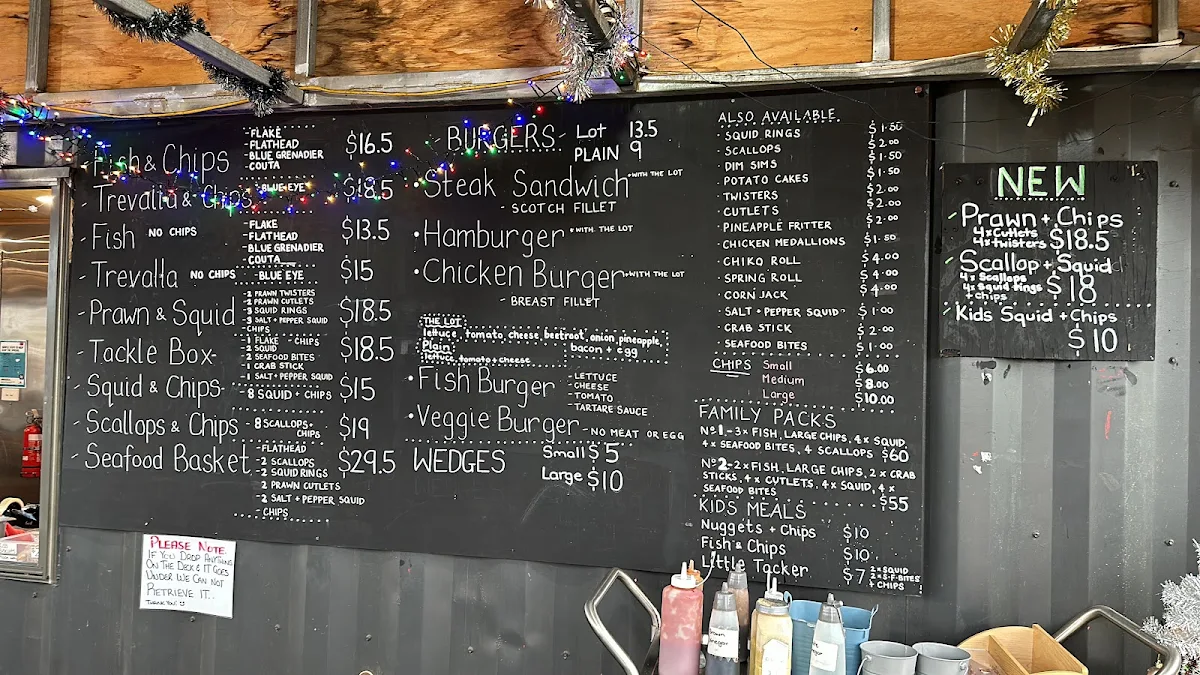 Fish & Chips
-FLAKE
-FLATHEAD
-BLUE GRENADIER
-COUTA
$16.5
Trevalla & Chips -BLUE EYE $18.5
Fish NO CHIPS
-FLAKE
-FLATHEAD
-BLUE GRENADIER
-COUTA
$13.5
Trevalla NO CHIPS -BLUE EYE $15
Prawn & Squid
-2 PRAWN TWISTERS
-2 PRAWN CUTLETS
-3 SQUID RINGS
-3 SALT + PEPPER SQUID
-CHIPS
$18.5
Tackle Box
-1 FLAKE -CHIPS
-2 SQUID
-2 SEAFOOD BITES
-1 CRAB STICK
-1 SALT + PEPPER SQUID
$18.5
Squid & Chips - 8 SQUID + CHIPS $15
Scallops & Chips - 8 SCALLOPS+
CHIPS
$19
Seafood Basket
-FLATHEAD
-2 SCALLOPS
-2 SQUID RINGS
-2 PRAWN CUTLETS
-2 SALT + PEPPER SQUID
-CHIPS
$29.5
-BURGERS- Lot 13.5
PLAIN 9
•Steak Sandwich •WITH THE LOT
- SCOTCH FILLET
•Hamburger •WITH THE LOT
•Chicken Burger •WITH THE LOT
- BREAST FILLET
THE LOT
lettuce, tomato, cheese, beetroot, onion, pineapple,
bacon + egg
Plain
lettuce, tomato + cheese
•Fish Burger
-LETTUCE
-CHEESE
-TOMATO
TARTARE SAUCE
•Veggie Burger -NO MEAT OR EGG
WEDGES Small $5
Large $10
ALSO AVAILABLE
•SQUID RINGS $1.50
•SCALLOPS $2.00
•DIM SIMS $1.50
•POTATO CAKES $1.50
•TWISTERS $2.00
•CUTLETS $2.00
•PINEAPPLE FRITTER $2.00
•CHICKEN MEDALLIONS $1.50
•CHIKO ROLL $4.00
•SPRING ROLL $4.00
•CORN JACK $4.00
•SALT + PEPPER SQUID $1.00
•CRAB STICK $2.00
•SEAFOOD BITES $1.00
CHIPS Small $6.00
Medium $8.00
Large $10.00
FAMILY PACKS
Nº1 - 3 x FISH, LARGE CHIPS, 4 x SQUID,
4 x SEAFOOD BITES, 4 SCALLOPS $60
Nº2 - 2 x FISH, LARGE CHIPS, 2 x CRAB
STICKS, 4 x CUTLETS, 4 x SQUID, 4 x
SEAFOOD BITES $55
KIDS MEALS
Nuggets + Chips $10
Fish & Chips $10
Little Tacker $7
2 x SQUID
2 x S.F. BITES
+ CHIPS
NEW
Prawn + Chips
4 x Cutlets
4 x Twisters
$18.5
Scallop + Squid
4 x Scallops
4 x Squid Rings
+ chips
$18
Kids Squid + Chips
$10
PLEASE NOTE.
IF YOU DROP ANYTHING
ON THE DECK & IT GOES
UNDER WE CAN NOT
RETRIEVE IT..
THANK YOU!